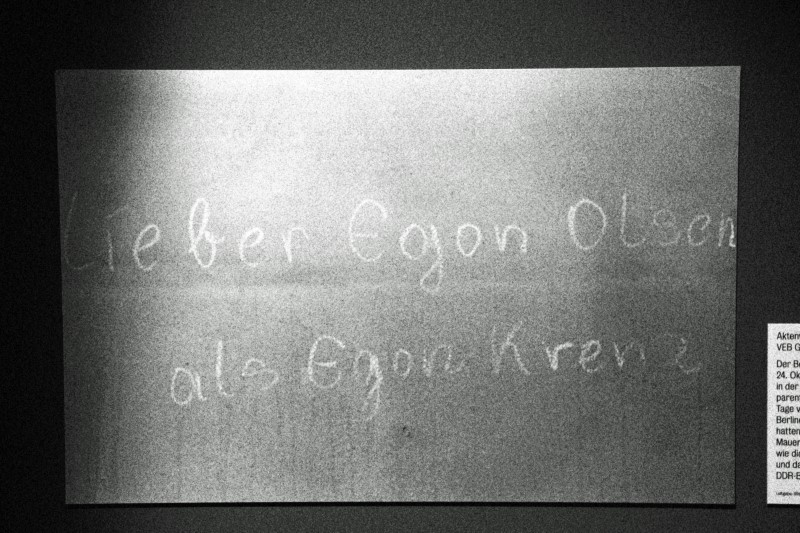 Lieber Egon Olsen
als Egon Krenz
VEB G
Der Be
24. Ok
in der
paren
Tage v
Berline
hatten
Mauer
wie die
und da
DDR-B